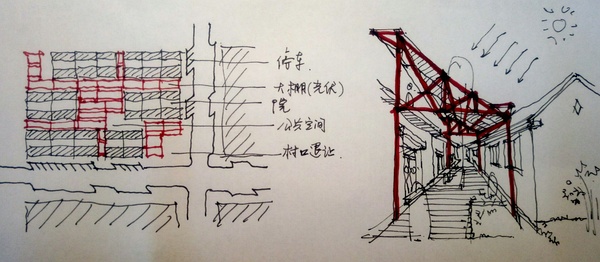 停车.
大棚(光伏)
院
公共空间
村口退让.